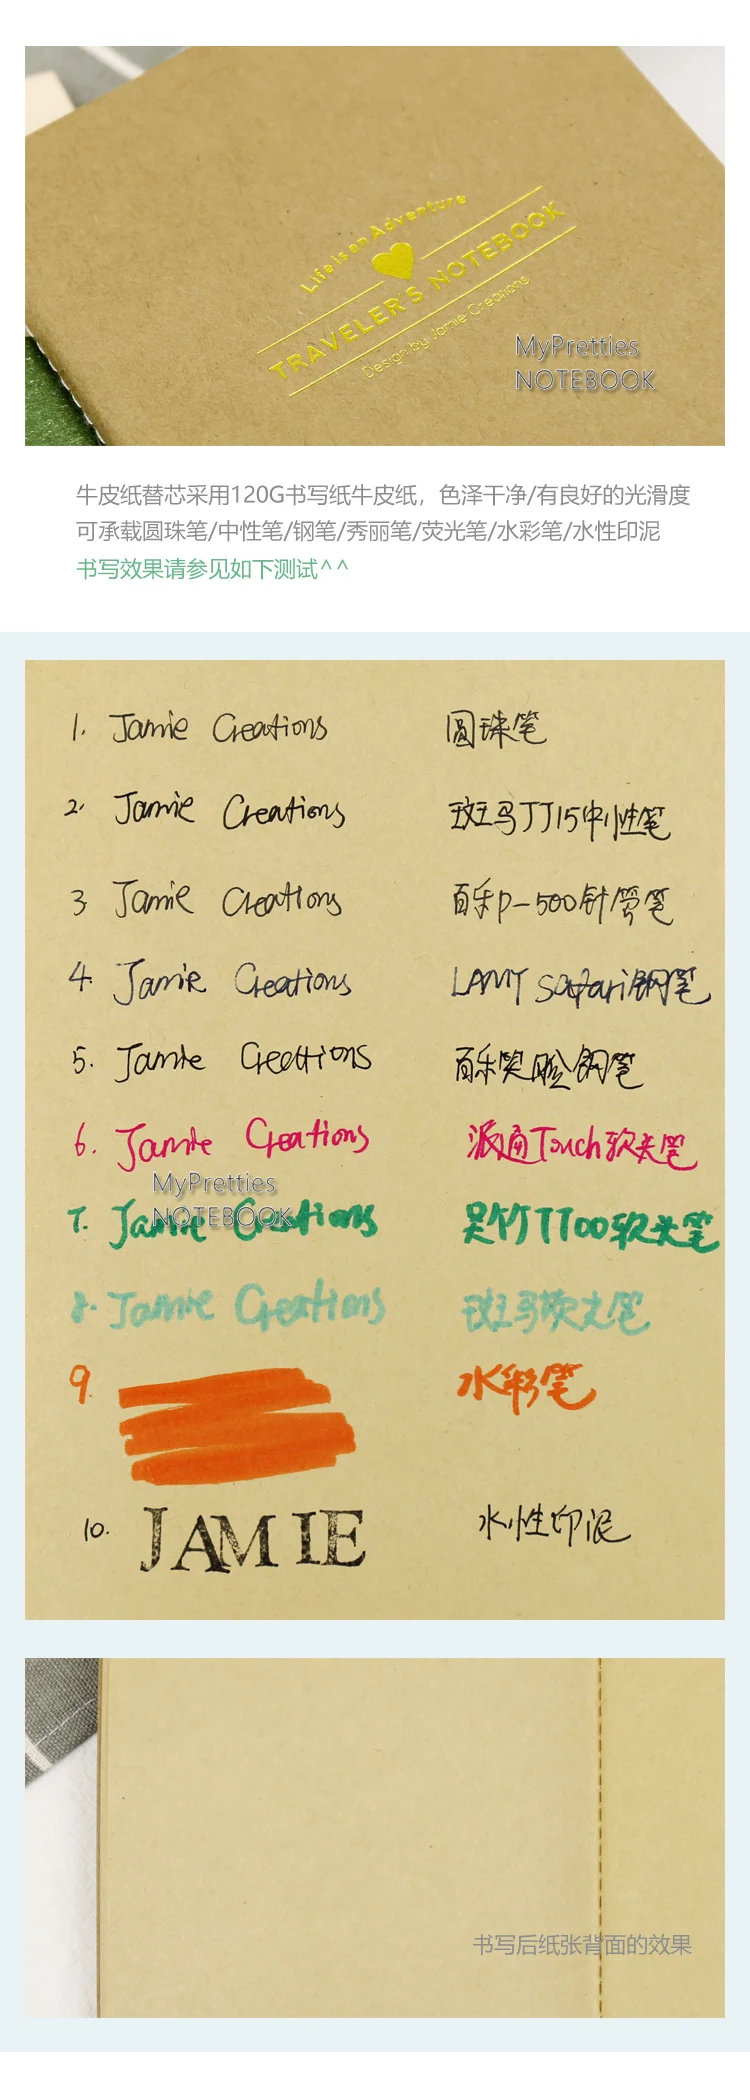 Life is an Adventure
TRAVELER'S NOTEBOOK
Design by Jamie Creations
MyPretties
NOTEBOOK
牛皮纸替芯采用120G书写纸牛皮纸，色泽干净/有良好的光滑度
可承载圆珠笔/中性笔/钢笔/秀丽笔/荧光笔/水彩笔/水性印泥
书写效果请参见如下测试^^
1. Jamie Creations 圆珠笔
2. Jamie Creations 斑马JJ15中性笔
3 Jamie Creations 百乐P-500针管笔
4. Jamie Creations LAMY Safari钢笔
5. Jamie Creations 百乐笑脸钢笔
6. Jamie Creations 派通Touch软头笔
MyPretties
NOTEBOOK
7. Jamie Creations 吴竹TT00软头笔
8. Jamie Creations 斑马荧光笔
9. 水彩笔
10. JAMIE 水性印泥
书写后纸张背面的效果